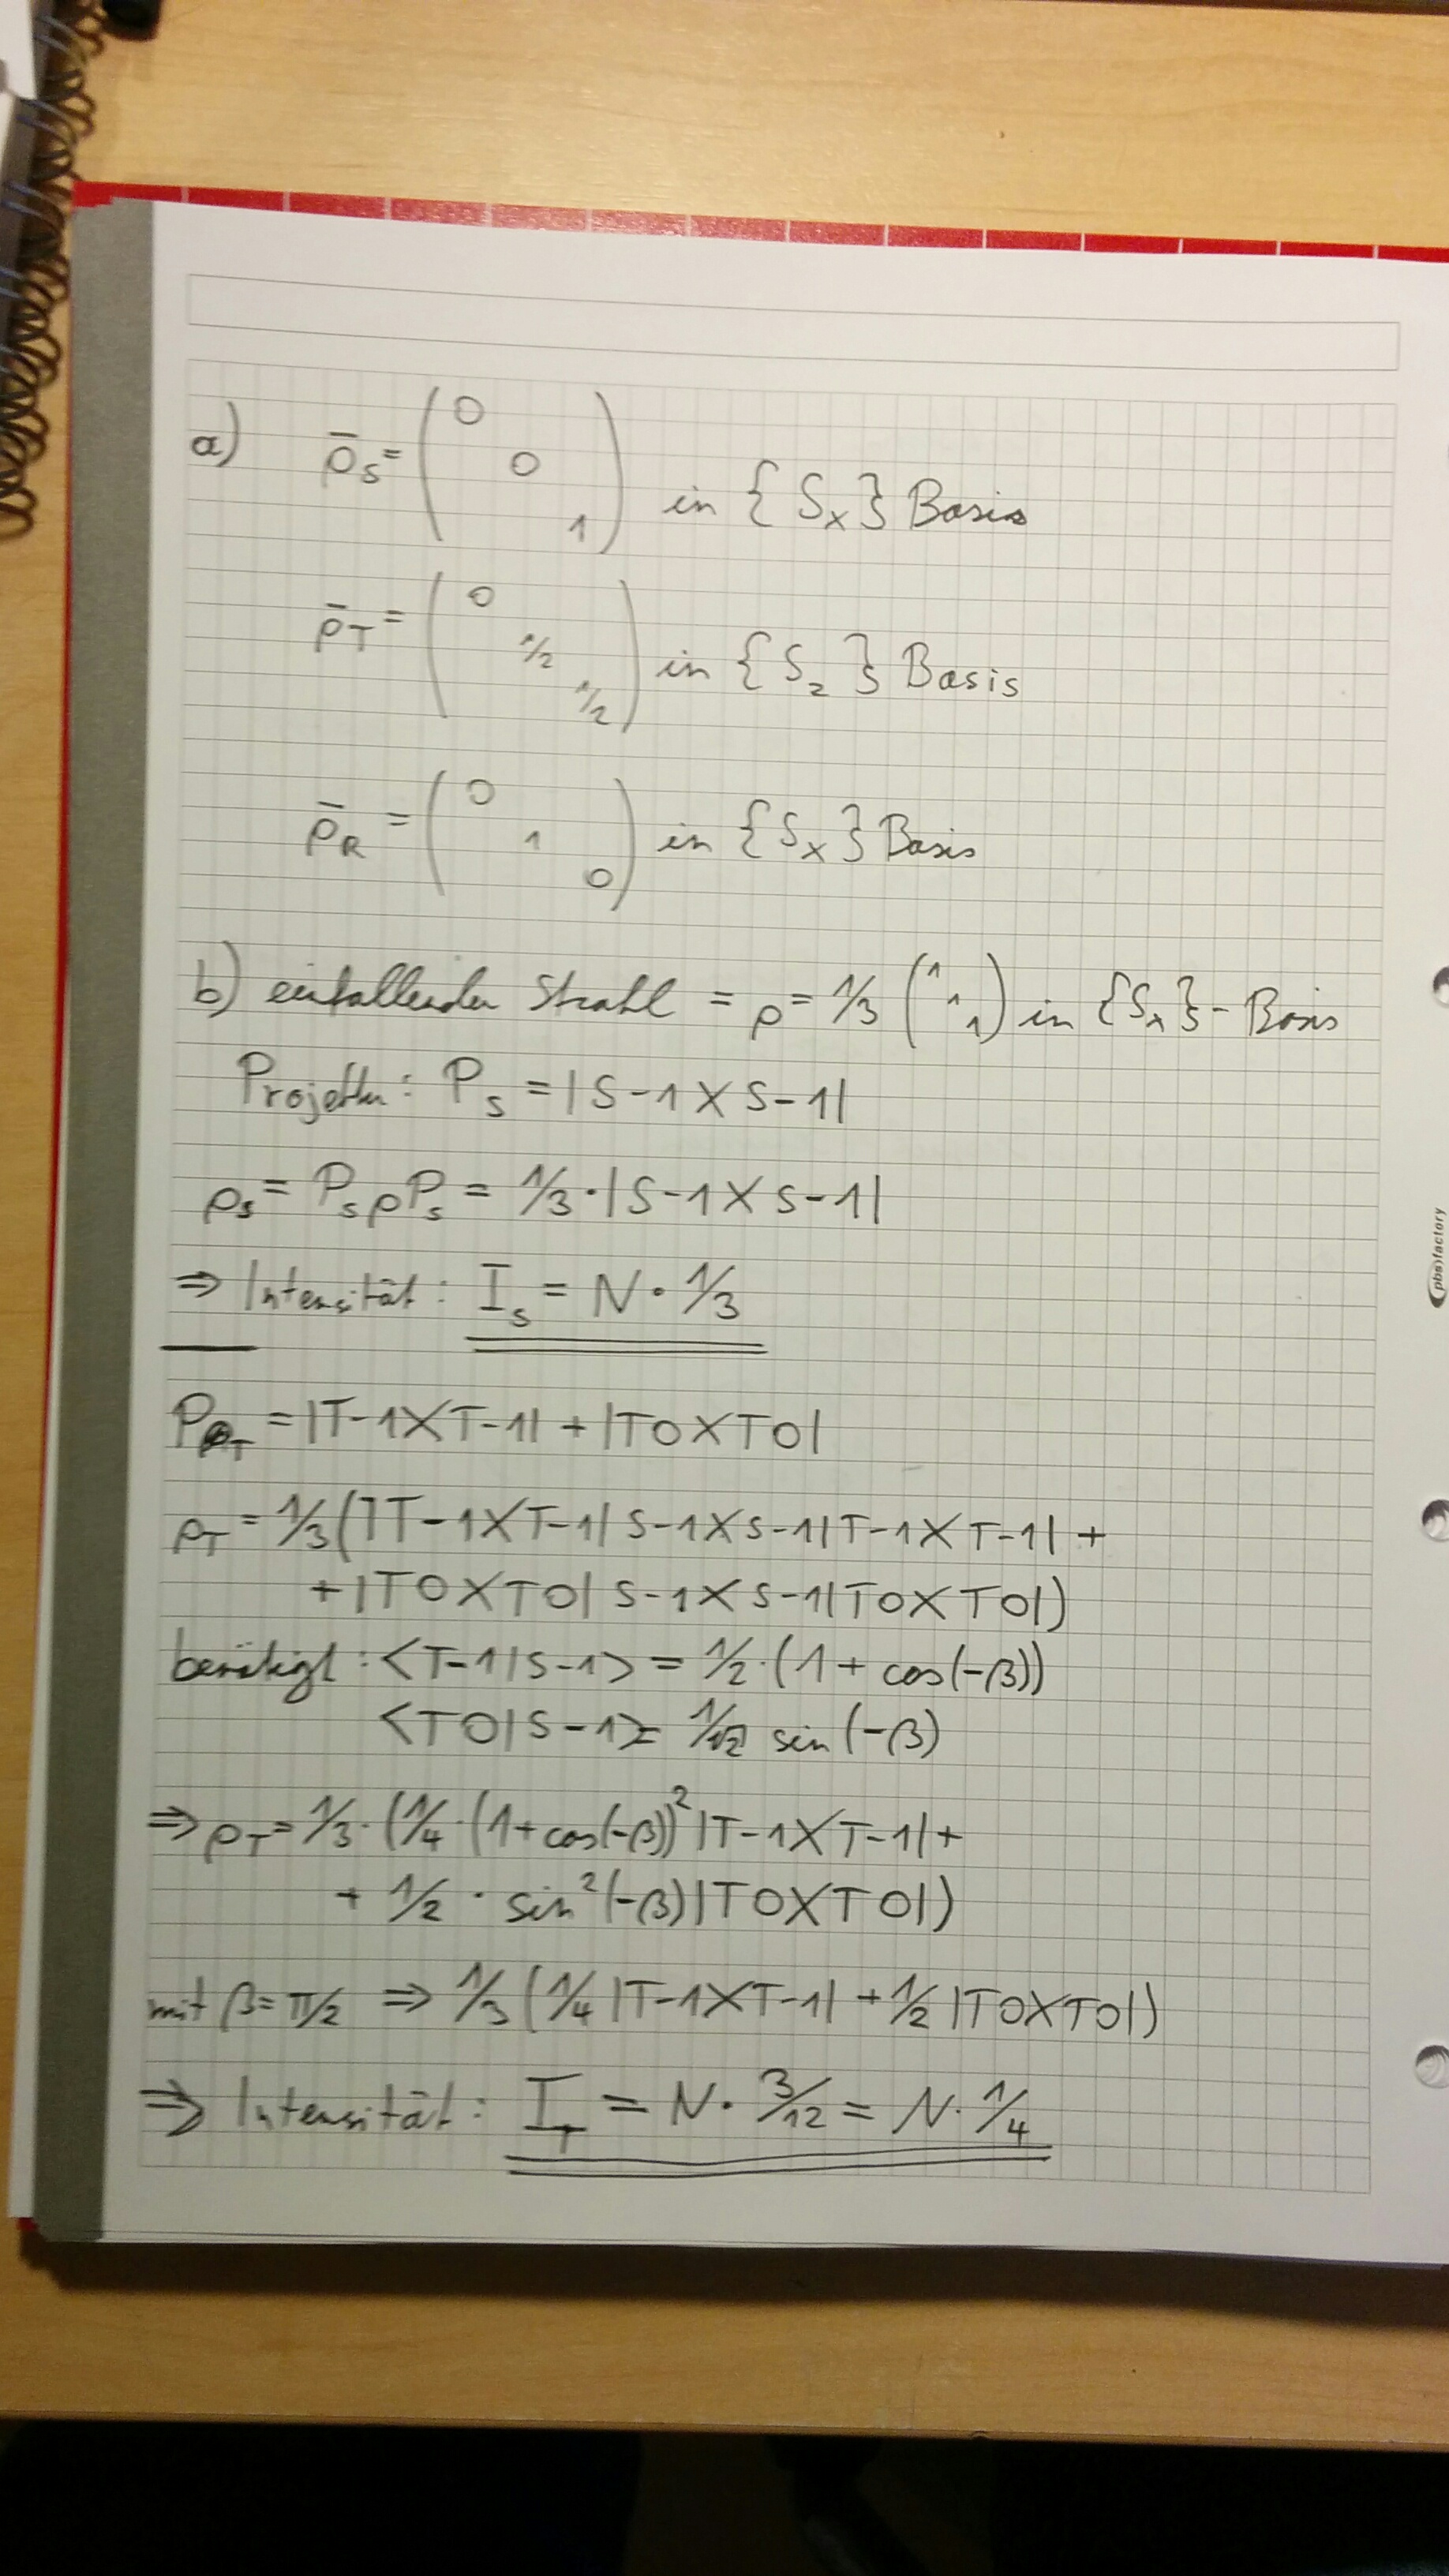 a) ρ̄_S = ( 0 0 1 ) in {S_x} Basis
ρ̄_T = ( 0 1/2 1/2 ) in {S_z} Basis
ρ̄_R = ( 0 1 0 ) in {S_x} Basis
b) einfallender Strahl = ρ = 1/3 ( 1 1 1 ) in {S_x}-Basis
Projektor: P_S = |S-1⟩⟨S-1|
ρ_S = P_S ρ P_S = 1/3 · |S-1⟩⟨S-1|
⇒ Intensität: I_S = N · 1/3
P_T = |T-1⟩⟨T-1| + |T0⟩⟨T0|
ρ_T = 1/3 (|T-1⟩⟨T-1|S-1⟩⟨S-1|T-1⟩⟨T-1| +
+ |T0⟩⟨T0|S-1⟩⟨S-1|T0⟩⟨T0|)
benötigt: ⟨T-1|S-1⟩ = 1/2 · (1 + cos(-β))
⟨T0|S-1⟩ = 1/√2 sin(-β)
⇒ ρ_T = 1/3 · (1/4 · (1 + cos(-β))² |T-1⟩⟨T-1| +
+ 1/2 · sin²(-β) |T0⟩⟨T0|)
mit β = π/2 ⇒ 1/3 (1/4 |T-1⟩⟨T-1| + 1/2 |T0⟩⟨T0|)
⇒ Intensität: I_T = N · 3/12 = N · 1/4
(pbs)factory